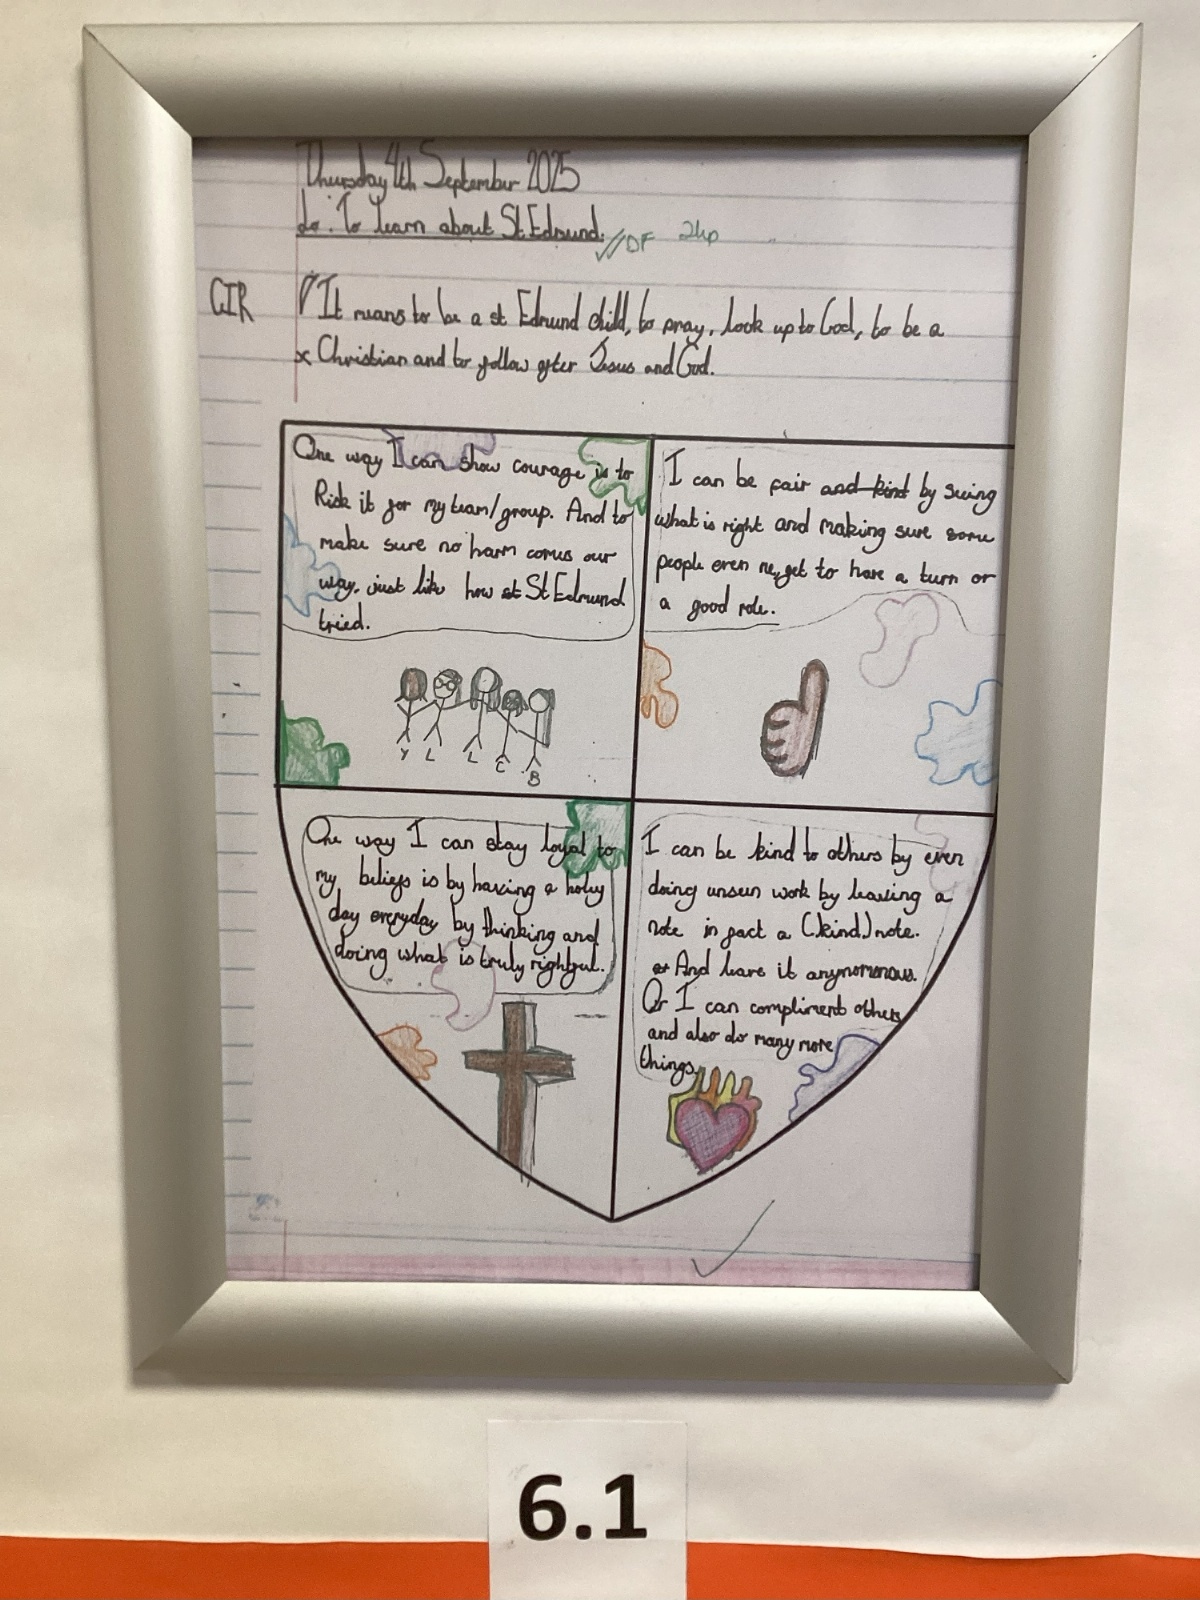 Thursday 4th September 2025
Lo: To learn about St Edmund.
DF 2hp
CIR
It means to be a st Edmund child, to pray, look up to God, to be a
Christian and to follow after Jesus and God.
One way I can show courage is to
Risk it for my team/group. And to
make sure no harm comes our
way, just like how st St Edmund
tried.
Y L L C B
I can be fair and kind by seeing
what is right and making sure some
people even me, get to have a turn or
a good role.
One way I can stay loyal to
my beliefs is by having a holy
day everyday by thinking and
doing what is truly rightful.
I can be kind to others by even
doing unseen work by leaving a
note in fact a (kind) note.
And leave it anynomonous.
Or I can compliment others
and also do many more
things.
6.1